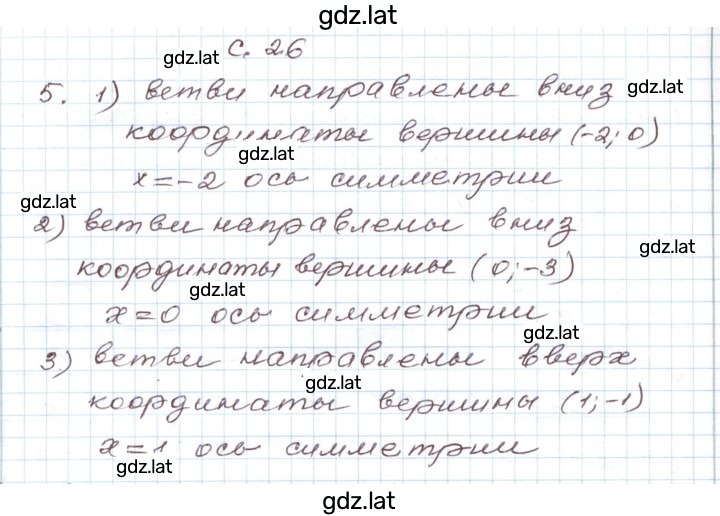 gdz.lat
gdz.lat с. 26
5. 1) ветви направлены вниз gdz.lat
координаты вершины (-2; 0)
gdz.lat
x = -2 ось симметрии
gdz.lat
2) ветви направлены вниз
gdz.lat
координаты вершины (0; -3)
gdz.lat
x = 0 ось симметрии
gdz.lat
3) ветви направлены вверх
gdz.lat
координаты вершины (1; -1)
x = 1 ось симметрии
gdz.lat
gdz.lat